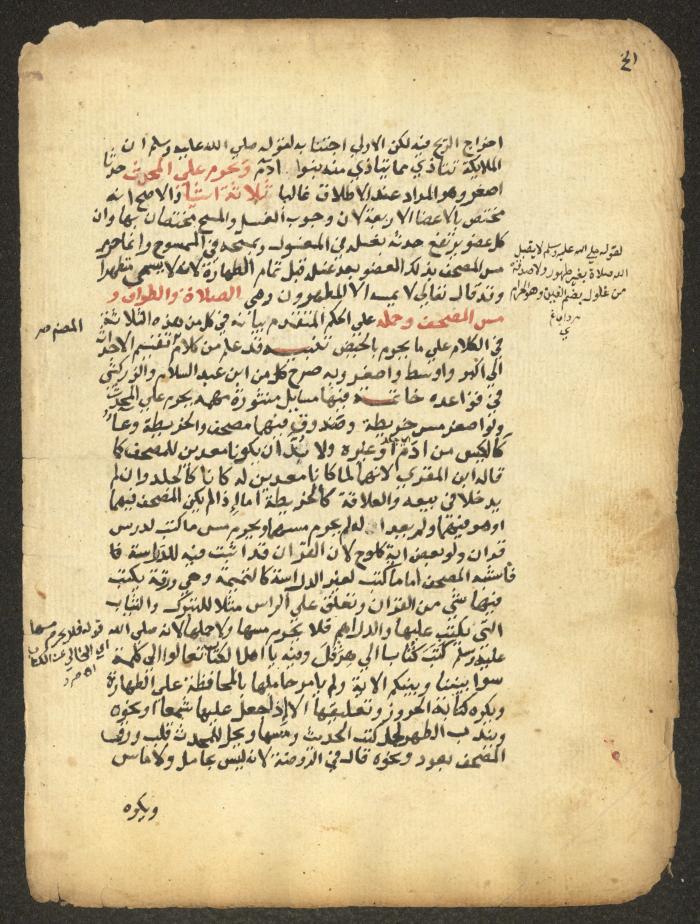 ٤١
اخراج الريح فيه لكن الاولي اجتنابه لقوله صلي الله عليه وسلم ان
الملايكة تتاذي مما يتاذي منه بنوا ادم ويحرم علي المحدث حدثا
اصغر وهو المراد عند الاطلاق غالبا ثلاثة اشيا والاصح انه
مختص بالاعضا الاربعة لان وجوب الغسل والمسح مختصان بها وان
كل عضو يرتفع حدثه بغسله في المغسول وبمسحه في الممسوح وانما حرم
مس المصحف بذلك العضو بعد غسله قبل تمام الطهارة لانه لا يسمي متطهرا
وقد قال تعالي لا يمسه الا المطهرون وهي الصلاة والطواف و
مس المصحف وحمله علي الحكم المتقدم بيانه في كل من هذه الثلاثة
في الكلام علي ما يحرم بالحيض تنبيه قد علم من كلامه تقسيم الاحداث
الي اكبر واوسط واصغر وبه صرح كل من ابن عبد السلام والزركشي
في قواعده خاتمة فيها مسايل منثورة مهمة يحرم علي المحدث
ولو اصغر مس خريطة وصندوق فيهما مصحف والخريطة وعاء
كالكيس من ادم او غيره ولا بد ان يكونا معدين للمصحف كما
قاله ابن المقري لانهما لما كانا معدين له كانا كالجلد وان لم
يدخلا في بيعه والعلاقة كالخريطة اما اذا لم يكن المصحف فيهما
او هو فيهما ولم يعدا له لم يحرم مسهما ويحرم مس ما كتب لدرس
قران ولو بعض اية كلوح لان القران قد اثبت فيه للدراسة فا
فاشبه المصحف اما ما كتب لغير الدراسة كالتميمة وهي ورقة يكتب
فيها شي من القران وتعلق علي الراس مثلا للتبرك والثياب
التي يكتب عليها والدراهم فلا يحرم مسها ولا حملها لانه صلي الله
عليه وسلم كتب كتابا الي هرقل وفيه يا اهل الكتاب تعالوا الي كلمة
سوا بيننا وبينكم الاية ولم يامر حاملها بالمحافظة علي الطهارة
ويكره كتابة الحروز وتعليقها الا اذا جعل عليها شمعا او نحوه
ويندب التطهر لحمل كتب الحديث ومسها ويحل للمحدث قلب ورق
المصحف بعود ونحوه قاله في الروضة لانه ليس بحامل ولا ماس
ويكره
لقوله صلي الله عليه وسلم لا يقبل
الله صلاة بغير طهور ولا صدقة
من غلول بضم الغين وهو الحرام
قوله فلا يحرم مسها